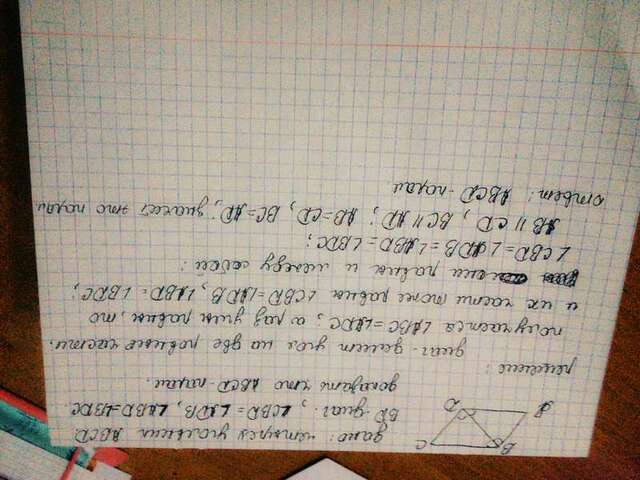 B C
A D
дано: четырехугольник ABCD.
BD-диаг., ∠CBD=∠ADB, ∠ABD=∠BDC.
доказать что ABCD-парал.
решение:
диаг. делит угол на две ровные части,
получается ∠ABC=∠ADC; а раз углы равны, то
и их части тоже равны ∠CBD=∠ADB, ∠ABD=∠BDC;
они равны и между собой:
∠CBD=∠ADB=∠ABD=∠BDC;
AB || CD, BC || AD; AB=CD, BC=AD; значест это парал.
ответ: ABCD-парал.